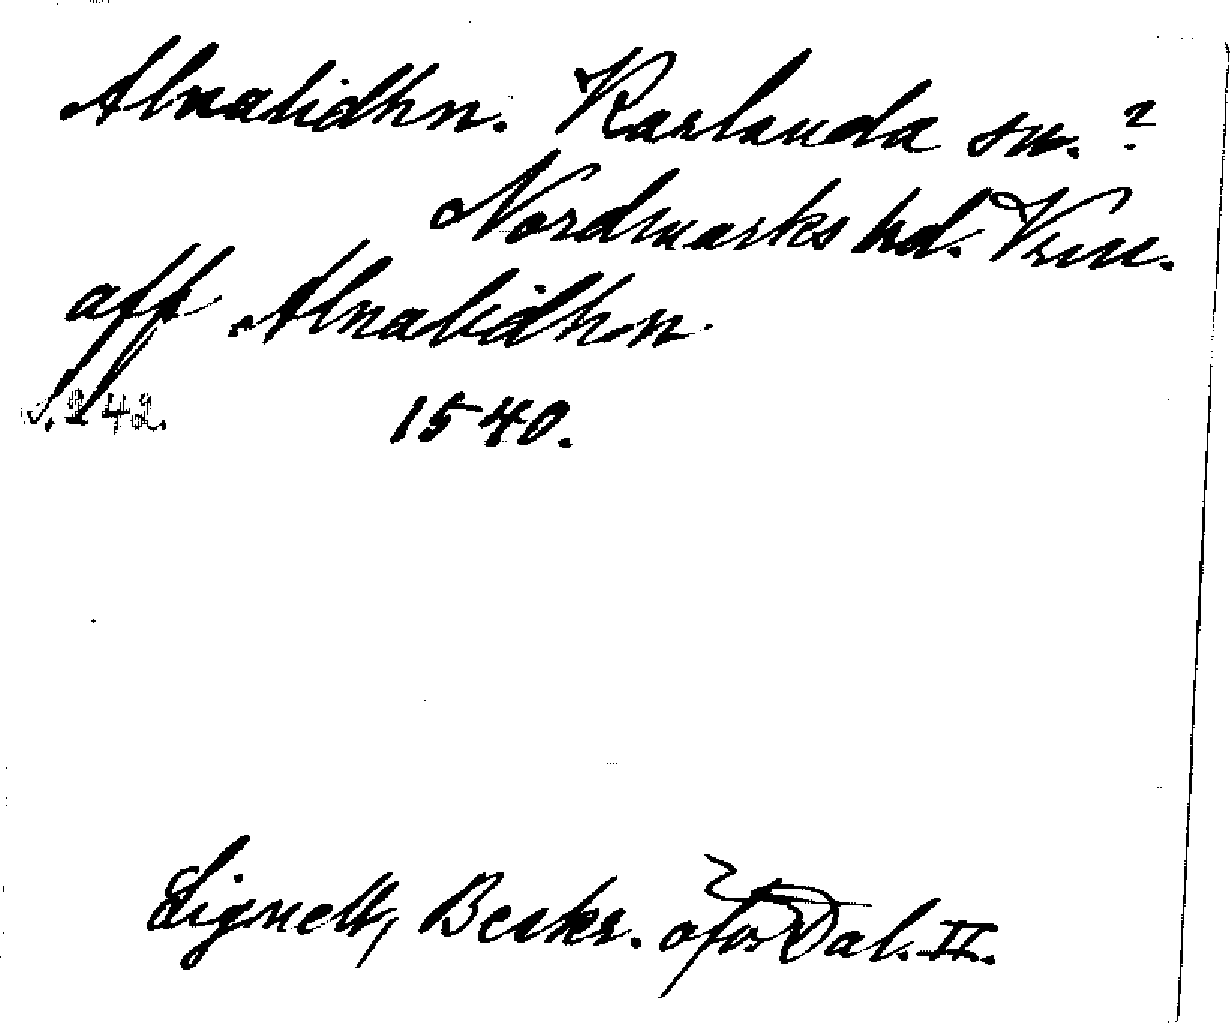 Alnalidhn. Karlanda sn. ?
Nordmarks hd. Vrm.
aff Alnalidhn
S. 242. 1540.
Lignell, Beskr. öfver Dal. II.